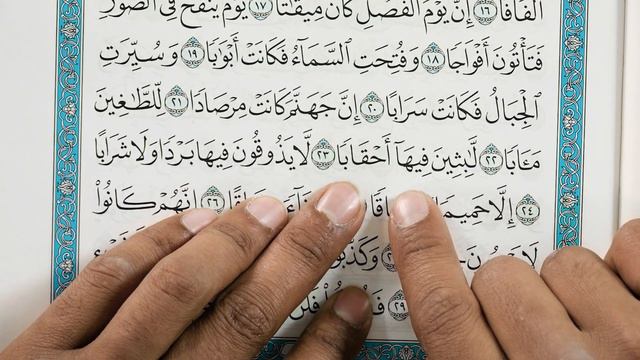 أَلْفَافًا ١٦ إِنَّ يَوْمَ ٱلْفَصْلِ كَانَ مِيقَٰتًا ١٧ يَوْمَ يُنفَخُ فِى ٱلصُّورِ
فَتَأْتُونَ أَفْوَاجًا ١٨ وَفُتِحَتِ ٱلسَّمَآءُ فَكَانَتْ أَبْوَٰبًا ١٩ وَسُيِّرَتِ
ٱلْجِبَالُ فَكَانَتْ سَرَابًا ٢٠ إِنَّ جَهَنَّمَ كَانَتْ مِرْصَادًا ٢١ لِّلطَّٰغِينَ
مَـَٔابًا ٢٢ لَّٰبِثِينَ فِيهَآ أَحْقَابًا ٢٣ لَّا يَذُوقُونَ فِيهَا بَرْدًا وَلَا شَرَابًا
٢٤ إِلَّا حَمِيمًا ٢٦ إِنَّهُمْ كَانُوا۟
لَا
٢٩